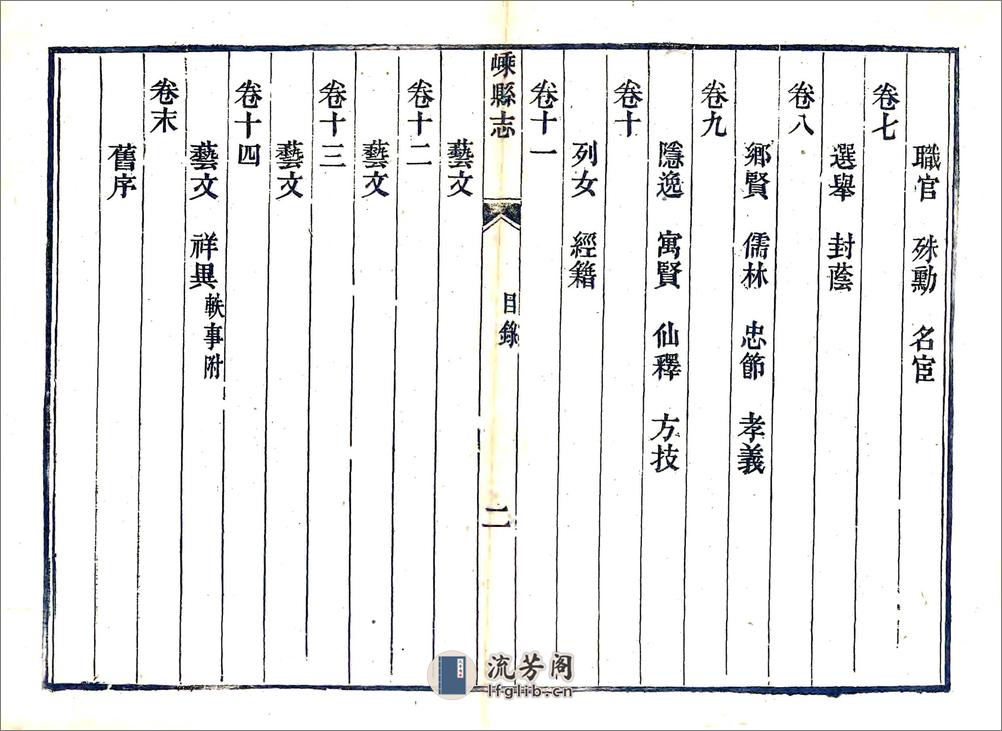 職官 殊勳 名宦
卷七
選舉 封蔭
卷八
鄉賢 儒林 忠節 孝義
卷九
隱逸 寓賢 仙釋 方技
卷十
列女 經籍
卷十一
嵊縣志 目錄 二
藝文
卷十二
藝文
卷十三
藝文
卷十四
藝文 祥異 軼事附
卷末
舊序
流芳阁
lfglib.cn